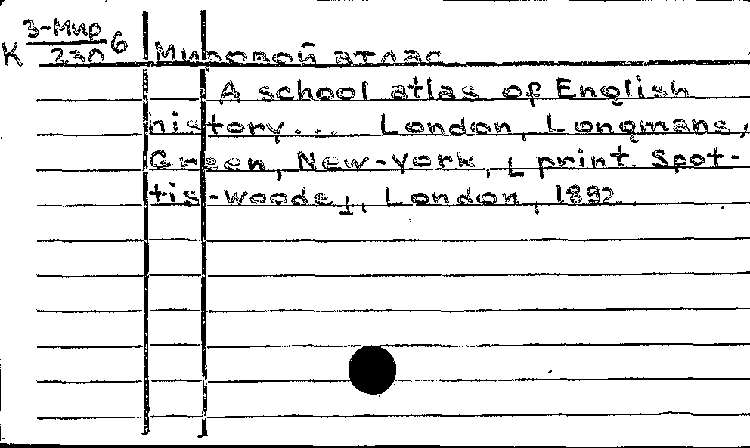 К 3-Мир/230 6
Мировой атлас
A school atlas of English
history... London, Longmans,
Green, New-York, [print. Spot-
tis-woode], London, 1892.